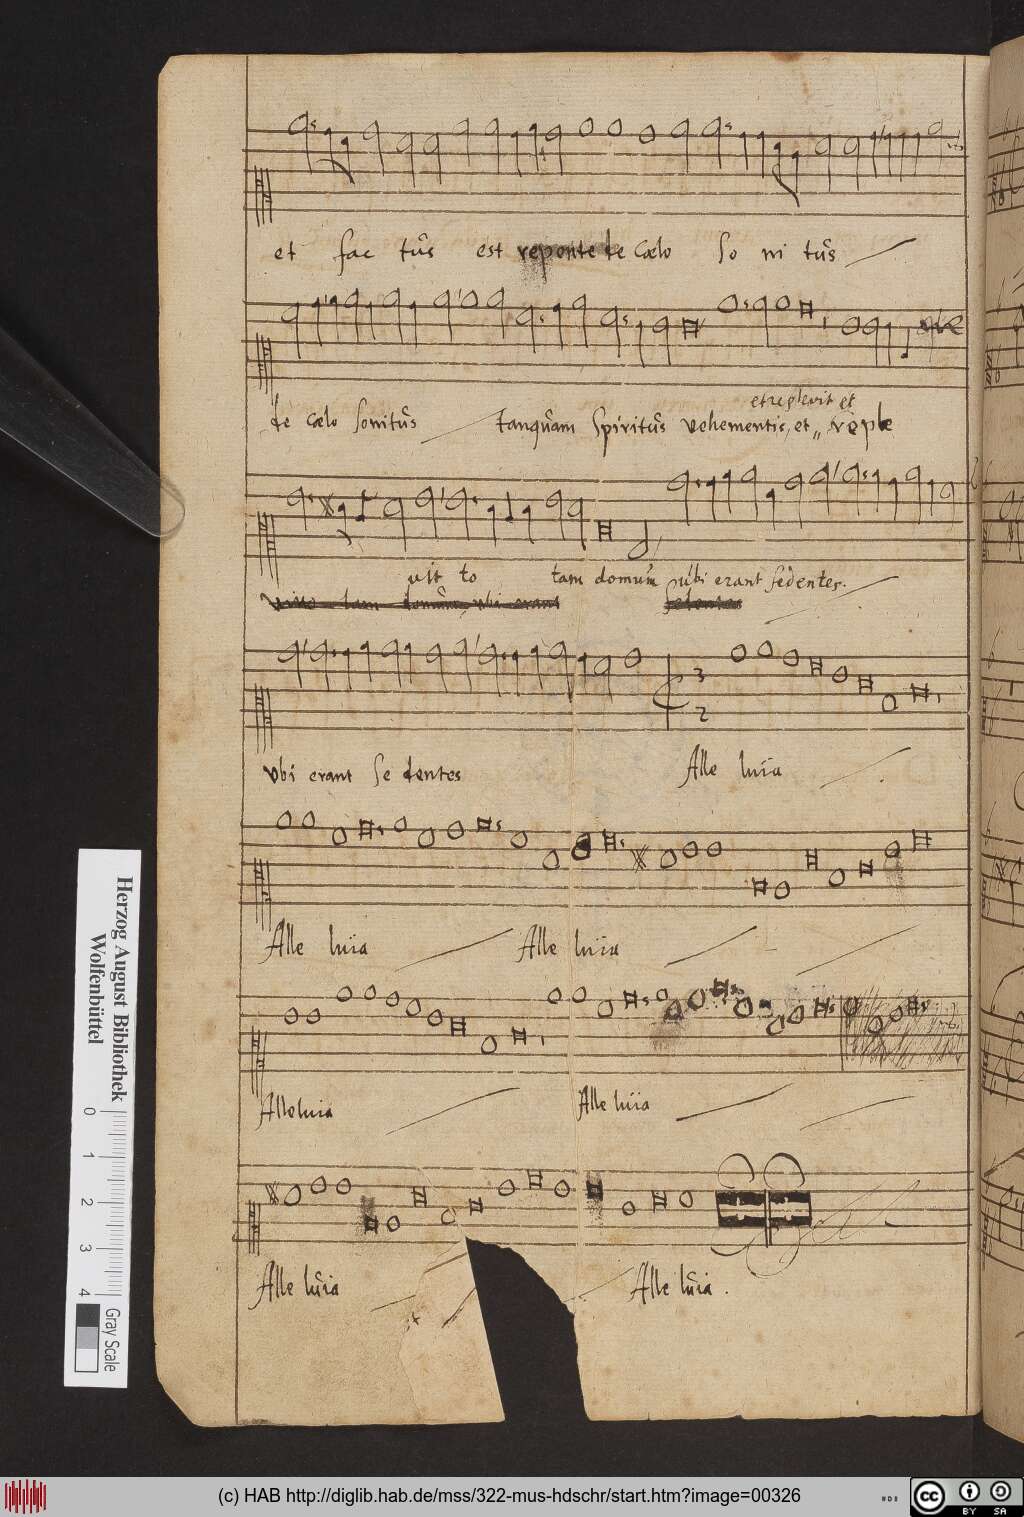 et fac tus est repente de cœlo So ni tus
de cœlo Sonitus tanquam Spiritus vehementis, et „ reple
et replevit et
vit to tam domum ubi erant sedentes.
tam domum, ubi erant sedentes
3
2
Vbi erant Se dentes Alle luia
Alle luia Alle luia
Alleluia Alle luia
Alle luia Alle luia .
Herzog August Bibliothek
Wolfenbüttel
0 1 2 3 4
Gray Scale
(c) HAB http://diglib.hab.de/mss/322-mus-hdschr/start.htm?image=00326
cc BY SA